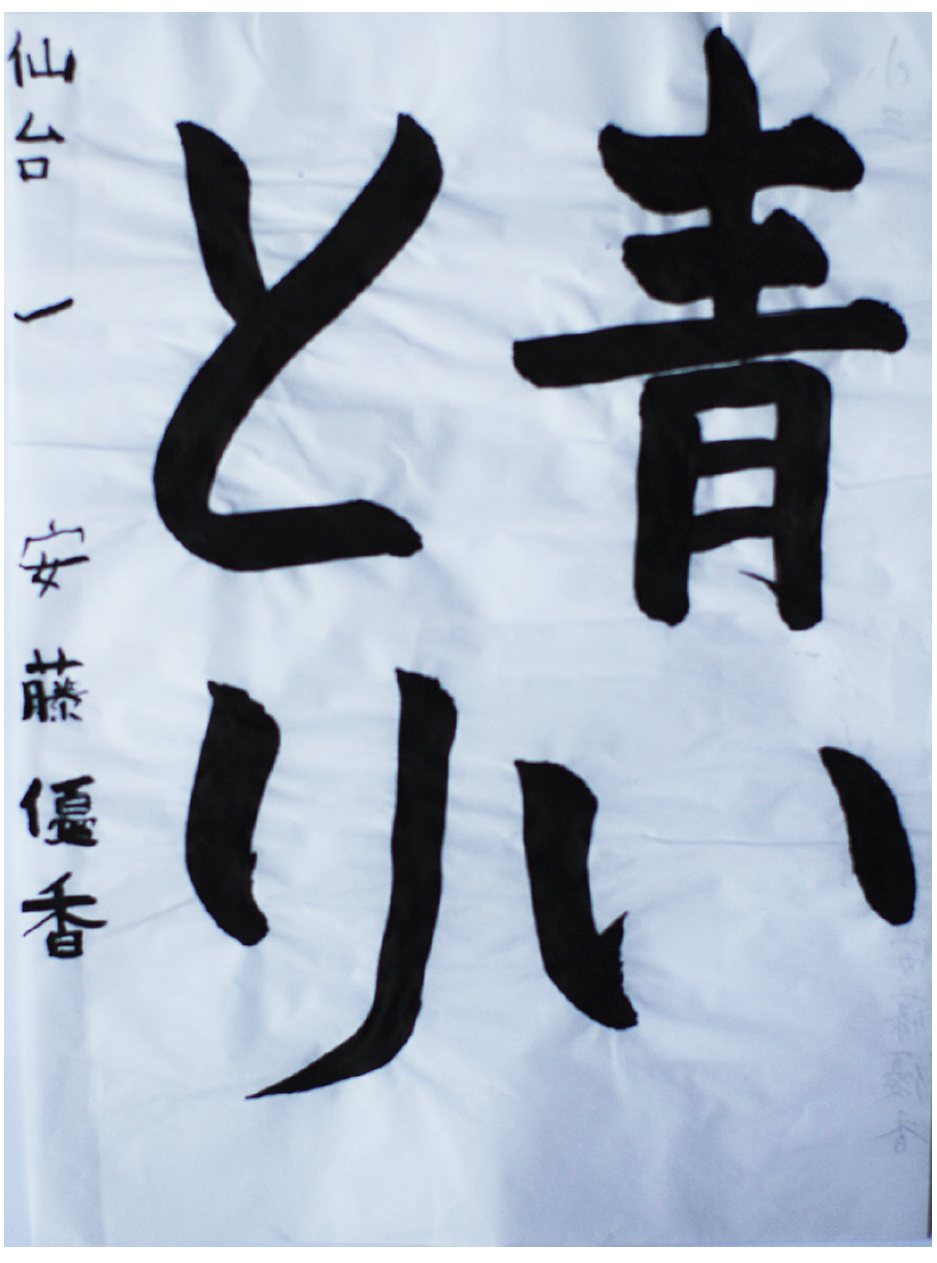 青い
とり
仙台 一 安藤優香